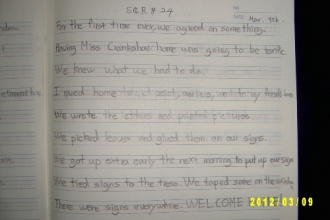 S.Q.R # 24
Mar. 9th
For the first time ever, we agreed on something.
Having Miss Crankshaw home was going to be terrific
We knew what we had to do.
I raced home to
We wrote the letters and painted pictures.
We picked leaves and glued them on our signs.
We got up extra early the next morning to put up our signs
We tied signs to the trees. We taped some on the
There were signs everywhere. WELCOME
2012/03/09